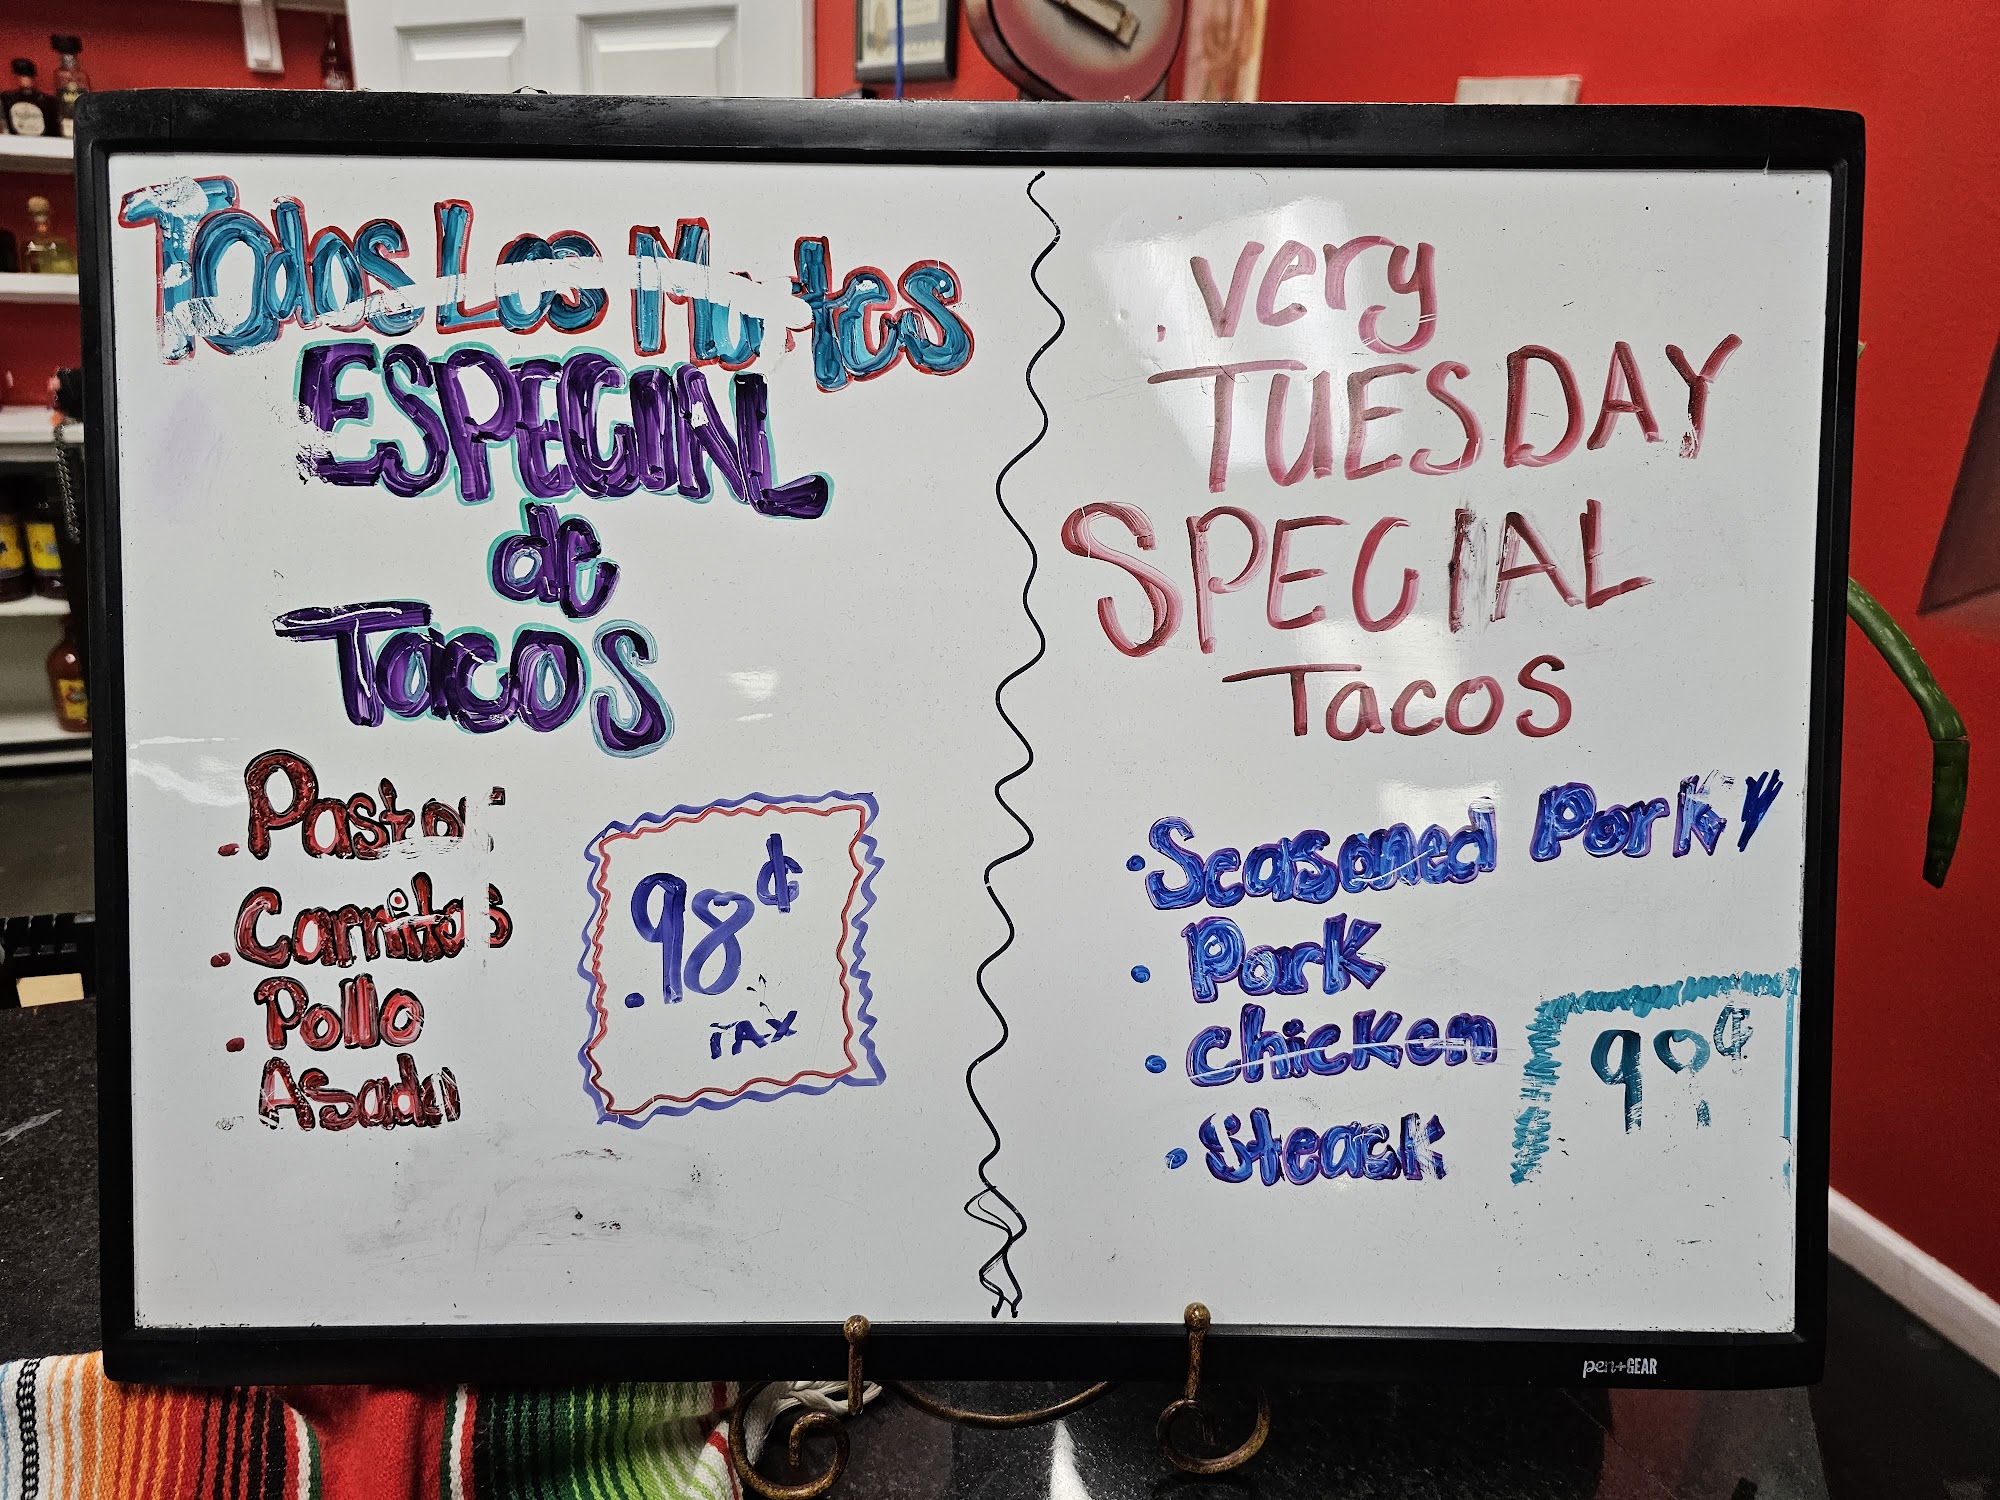 Todos Los Martes
ESPECIAL
de
Tacos
. Pastor
. Carnitas
. Pollo
Asada
.98¢
TAX
very
TUESDAY
SPECIAL
Tacos
• Seasoned Porky
• Pork
• Chicken
• Steack
pen+GEAR